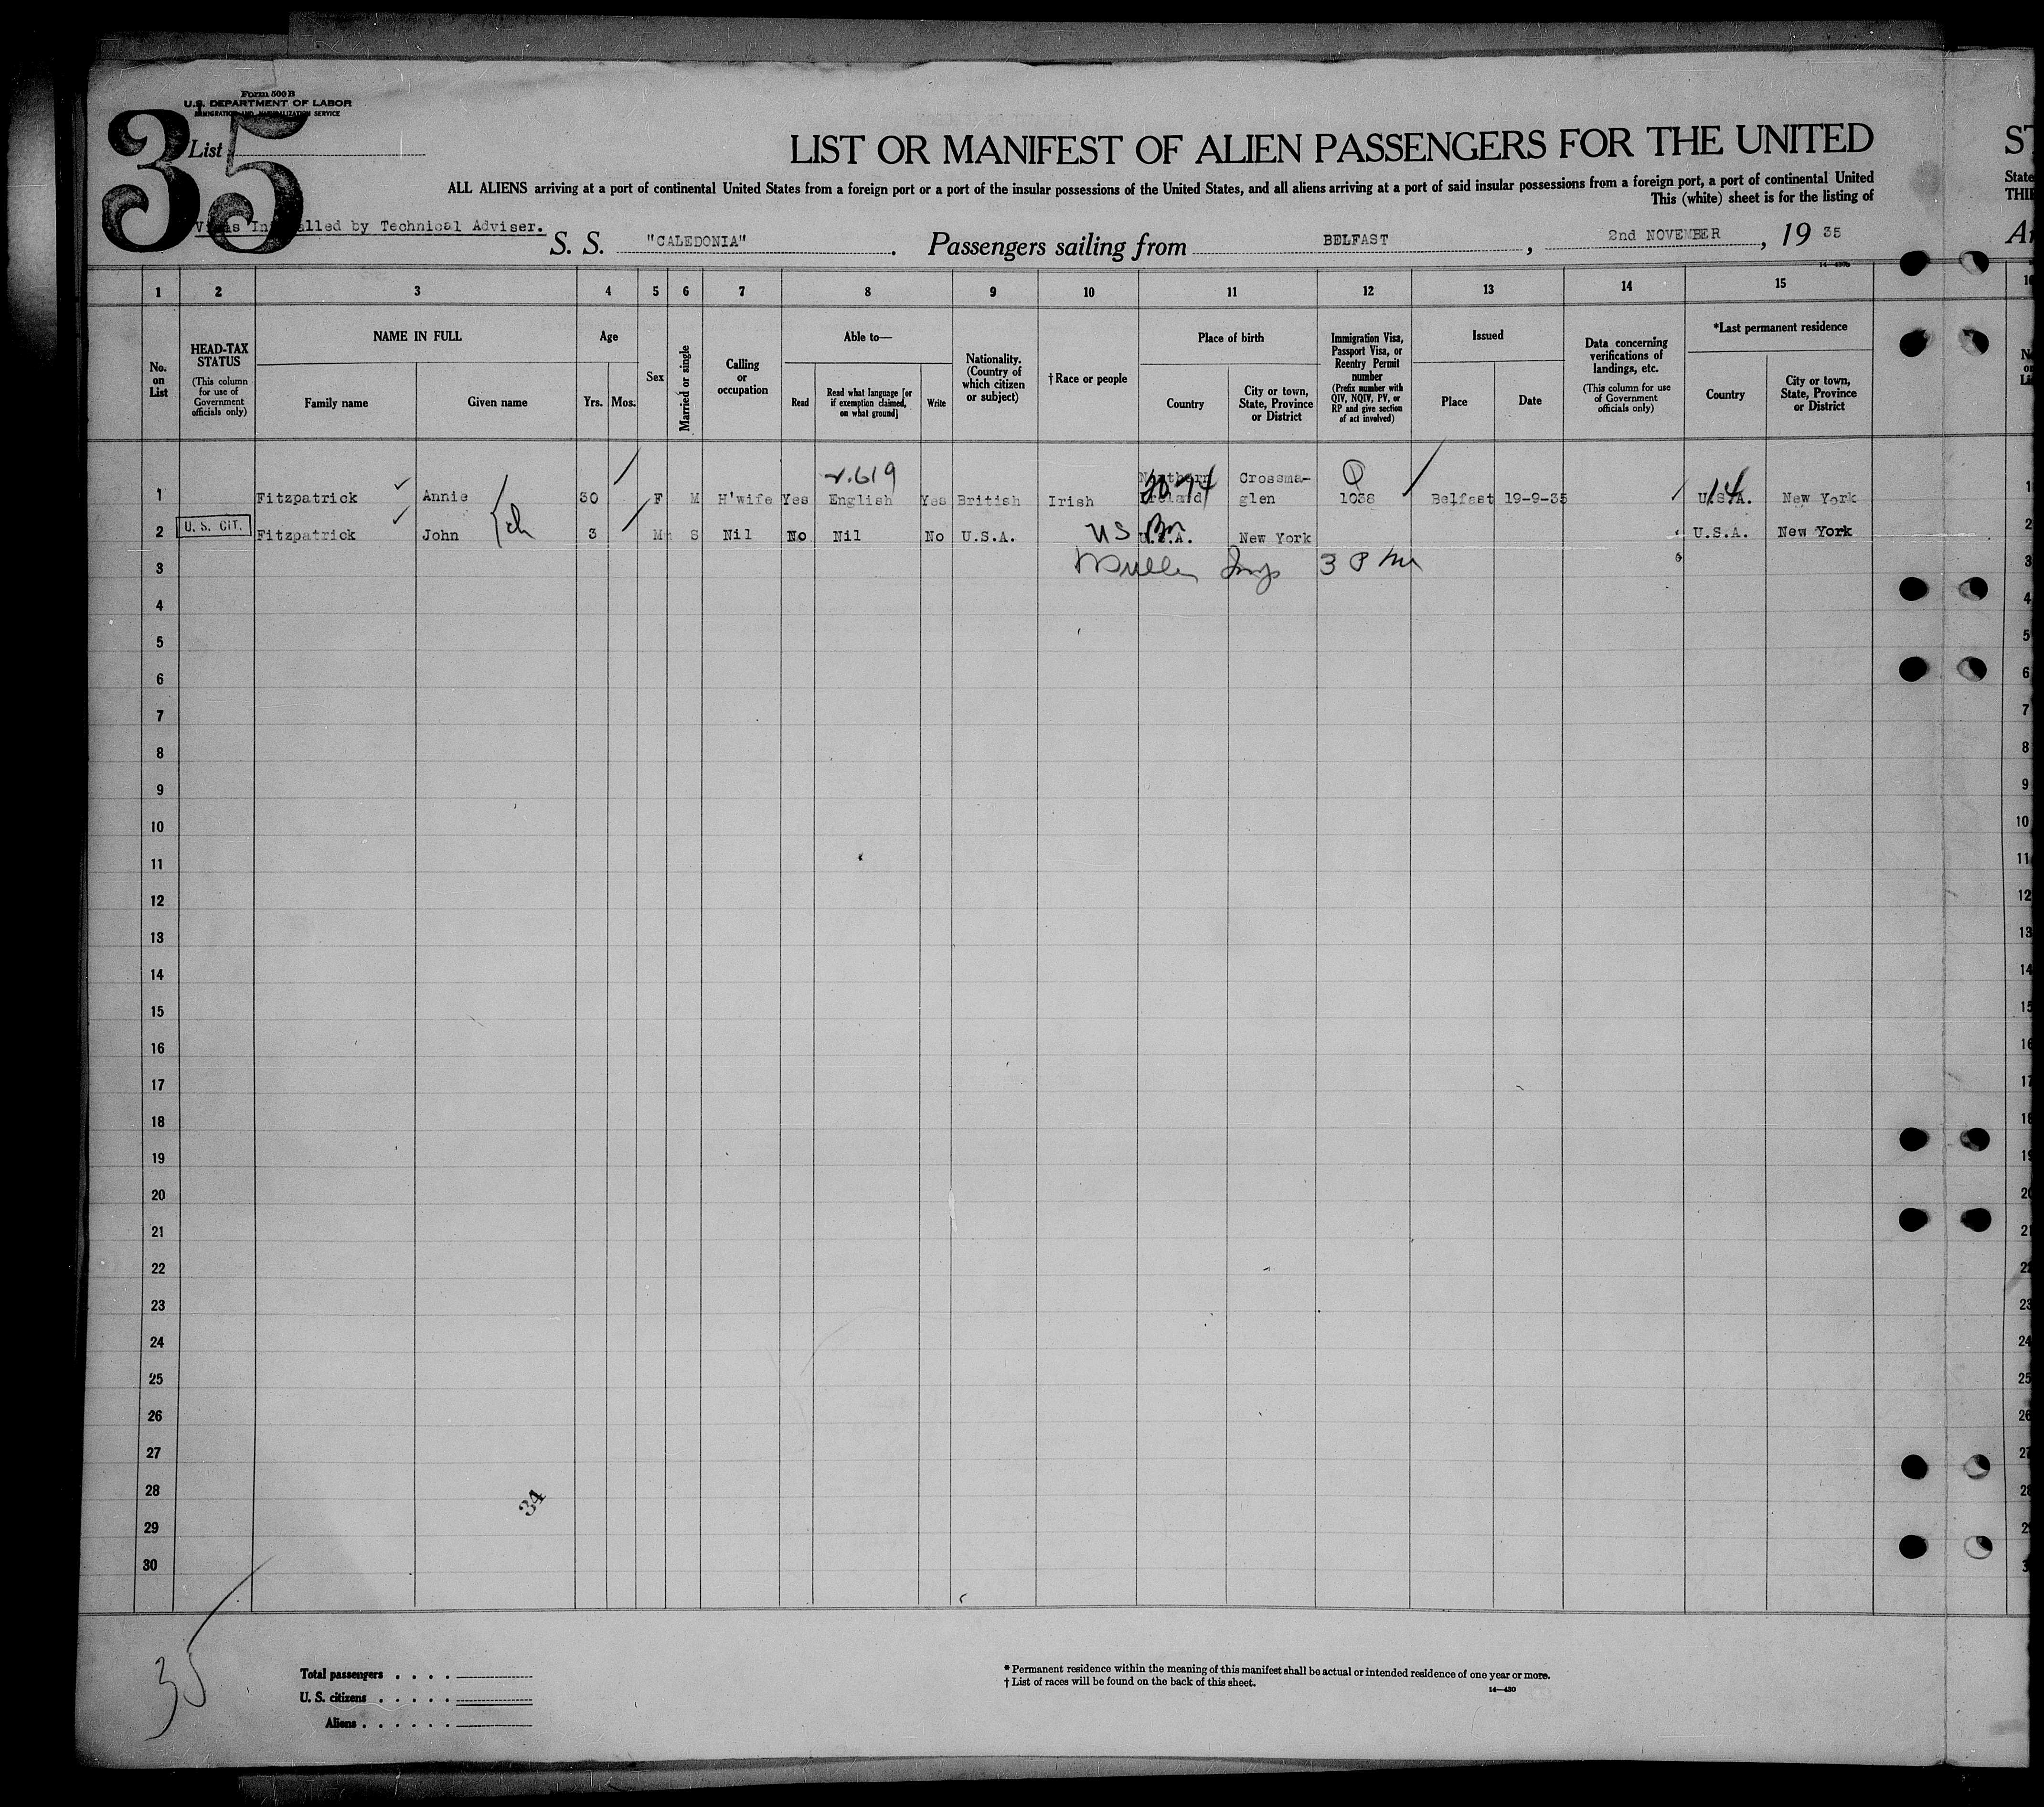 Form 500 B
U.S. DEPARTMENT OF LABOR
IMMIGRATION AND NATURALIZATION SERVICE
35
List
LIST OR MANIFEST OF ALIEN PASSENGERS FOR THE UNITED
ST
ALL ALIENS arriving at a port of continental United States from a foreign port or a port of the insular possessions of the United States, and all aliens arriving at a port of said insular possessions from a foreign port, a port of continental United
State
This (white) sheet is for the listing of
THI
Visas Initialled by Technical Adviser.
S. S. "CALEDONIA". Passengers sailing from BELFAST, 2nd NOVEMBER, 19 35
1 2 3 4 5 6 7 8 9 10 11 12 13 14 15
No. on List
HEAD-TAX STATUS
(This column for use of Government officials only)
NAME IN FULL
Family name
Given name
Age
Yrs. Mos.
Sex
Married or single
Calling or occupation
Able to—
Read
Read what language [or if exemption claimed, on what ground]
Write
Nationality. (Country of which citizen or subject)
†Race or people
Place of birth
Country
City or town, State, Province or District
Immigration Visa, Passport Visa, or Reentry Permit number
(Prefix number with QIV, NQIV, PV, or RP and give section of act involved)
Issued
Place
Date
Data concerning verifications of landings, etc.
(This column for use of Government officials only)
*Last permanent residence
Country
City or town, State, Province or District
Northern Crossma-
1 Fitzpatrick Annie 30 F M H'wife Yes English Yes British Irish Ireland glen 1038 Belfast 19-9-35 U.S.A. New York
2 U. S. CIT. Fitzpatrick John 3 M S Nil No Nil No U.S.A. U.S.A. New York U.S.A. New York
3
4
5
6
7
8
9
10
11
12
13
14
15
16
17
18
19
20
21
22
23
24
25
26
27
28
29
30
34
35
Total passengers
U. S. citizens
Aliens
* Permanent residence within the meaning of this manifest shall be actual or intended residence of one year or more.
† List of races will be found on the back of this sheet.
14—430